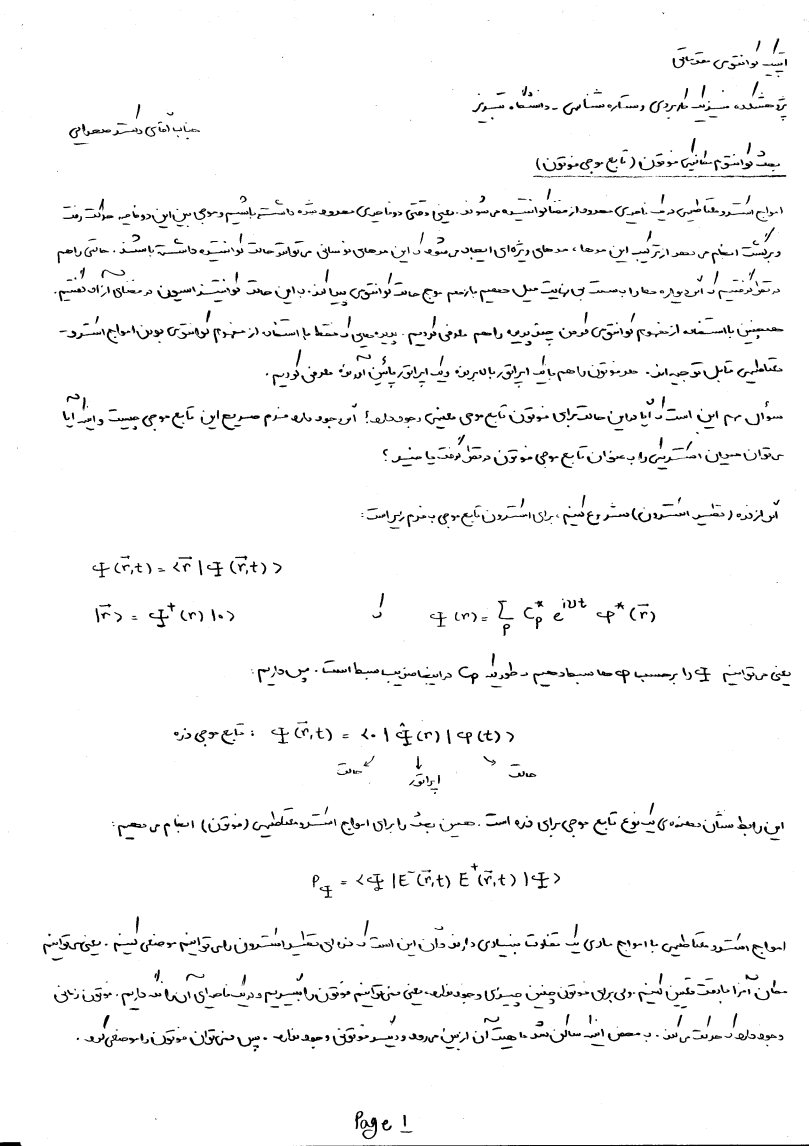 اپتیک کوانتومی مقدماتی
پژوهشکده فیزیک کاربردی و ستاره شناسی - دانشگاه تبریز
جناب آقای دکتر صحرایی
بحث کوانتوم مکانیکی فوتون (تابع موجی فوتون)
امواج الکترومغناطیسی در یک ناحیه‌ی محدود از فضا کوانتیده می‌شوند. یعنی وقتی دو ناحیه‌ی محدود شده داشته باشیم و موجی بین این دو ناحیه حرکت رفت
و برگشت انجام می‌دهد از ترکیب این مدها، مدهای ویژه‌ای ایجاد می‌شود که این مدهای نوسانی می‌تواند حالت کوانتیده داشته باشند. حالتی را هم
در نظر گرفتیم که این دیواره‌ها را به سمت بی نهایت میل دهیم باز هم موج حالت کوانتومی پیدا کند. به این حالت کوانتیزاسیون در فضای آزاد گفتیم.
همچنین با استفاده از مفهوم کوانتومی کردن چند پدیده را هم معرفی کردیم. پدیده‌هایی که فقط با استفاده از مفهوم کوانتومی بودن امواج الکترو-
مغناطیسی قابل توجیه‌اند. هر فوتون را هم با یک اپراتور بالابرنده و یک اپراتور پائین آورنده معرفی کردیم.
سؤال مهم این است که آیا در این حالت برای فوتون تابع موجی معینی وجود دارد؟ اگر وجود دارد فرم صریح این تابع موجی چیست و اینکه آیا
می‌توان میدان الکتریکی را به عنوان تابع موجی فوتون در نظر گرفت یا خیر؟
اگر از ذره (نظیر الکترون) شروع کنیم، برای الکترون تابع موجی به فرم زیر است:
Ψ(r⃗,t) = <r⃗ | Ψ(r⃗,t)>
|r⃗> = Ψ⁺(r) |0> که Ψ(r) = Σ_p C_p^* e^{iνt} φ^*(r⃗)
یعنی می‌توانیم Ψ را برحسب φ ها بسط دهیم به طوریکه C_p در اینجا ضریب بسط است. پس داریم:
تابع موجی ذره : Ψ(r⃗,t) = <0 | Ψ̂(r) | φ(t)>
حالت اپراتور حالت
این رابطه نشان دهنده‌ی یک نوع تابع موجی برای ذره است. همین بحث را برای امواج الکترومغناطیسی (فوتون) انجام می‌دهیم:
P_Ψ = <Ψ | E⁻(r⃗,t) E⁺(r⃗,t) | Ψ>
امواج الکترومغناطیسی با امواج مادی یک تفاوت بنیادی دارند و آن این است که ذره‌ای نظیر الکترون را می‌توانیم موضعی کنیم. یعنی می‌توانیم
مکان آنرا با دقت تعیین کنیم. ولی برای فوتون چنین چیزی وجود ندارد، یعنی نمی‌توانیم فوتون را بگیریم و در یک ناحیه‌ای آن را نگه داریم. فوتون زمانی
وجود دارد که حرکت می‌کند. به محض اینکه ساکن بشود ماهیت آن از بین می‌رود و دیگر فوتونی وجود ندارد. پس نمی‌توان فوتون را موضعی کرد.
Page 1